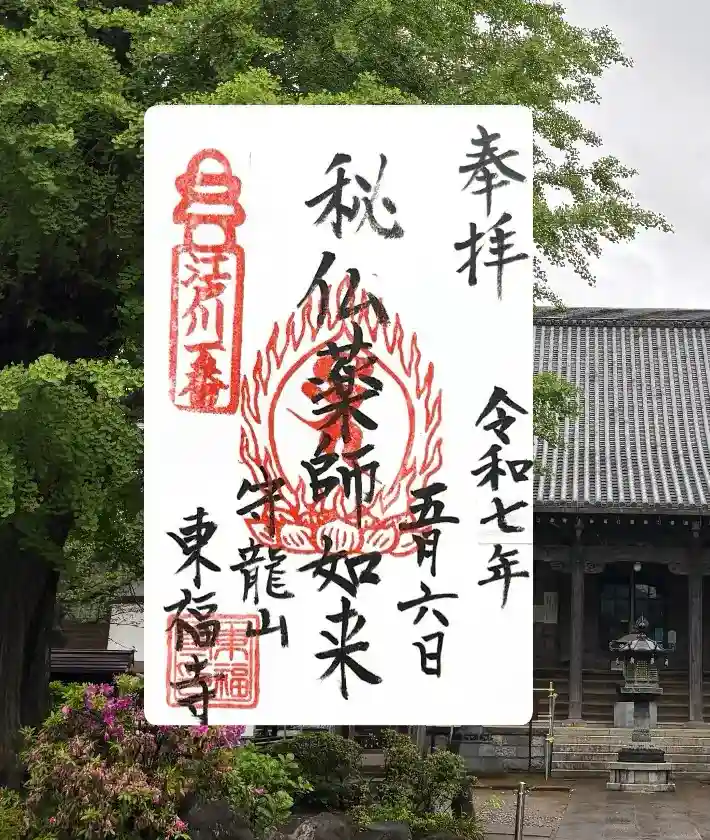 奉拝
令和七年
五月六日
秘仏薬師如来
守龍山
東福寺
江戸川一番
東福